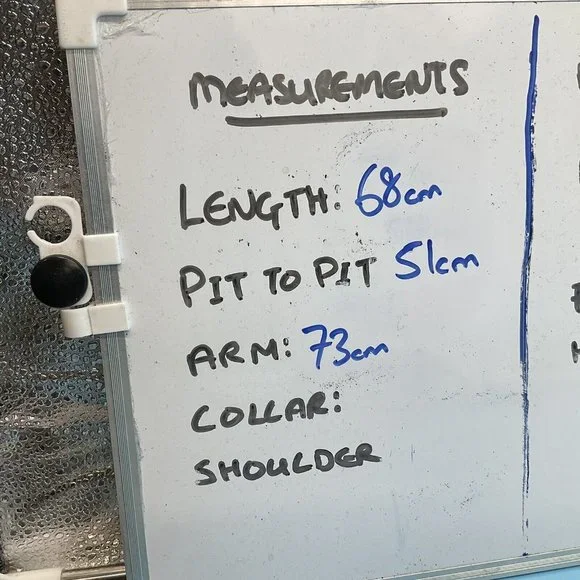 MEASUREMENTS
LENGTH: 68cm
PIT TO PIT 51cm
ARM: 73cm
COLLAR:
SHOULDER